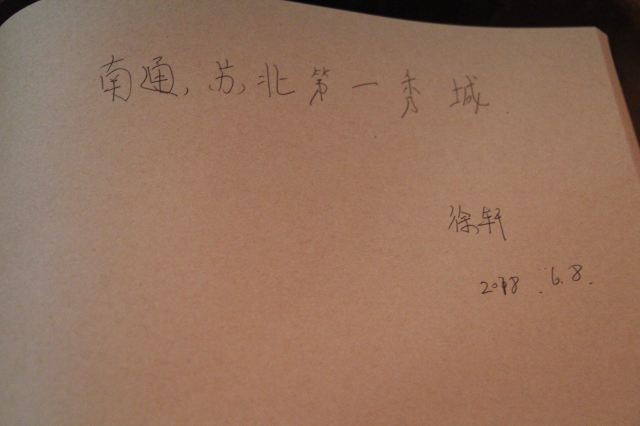 南通,苏北第一秀城.
徐轩
2018.6.8.